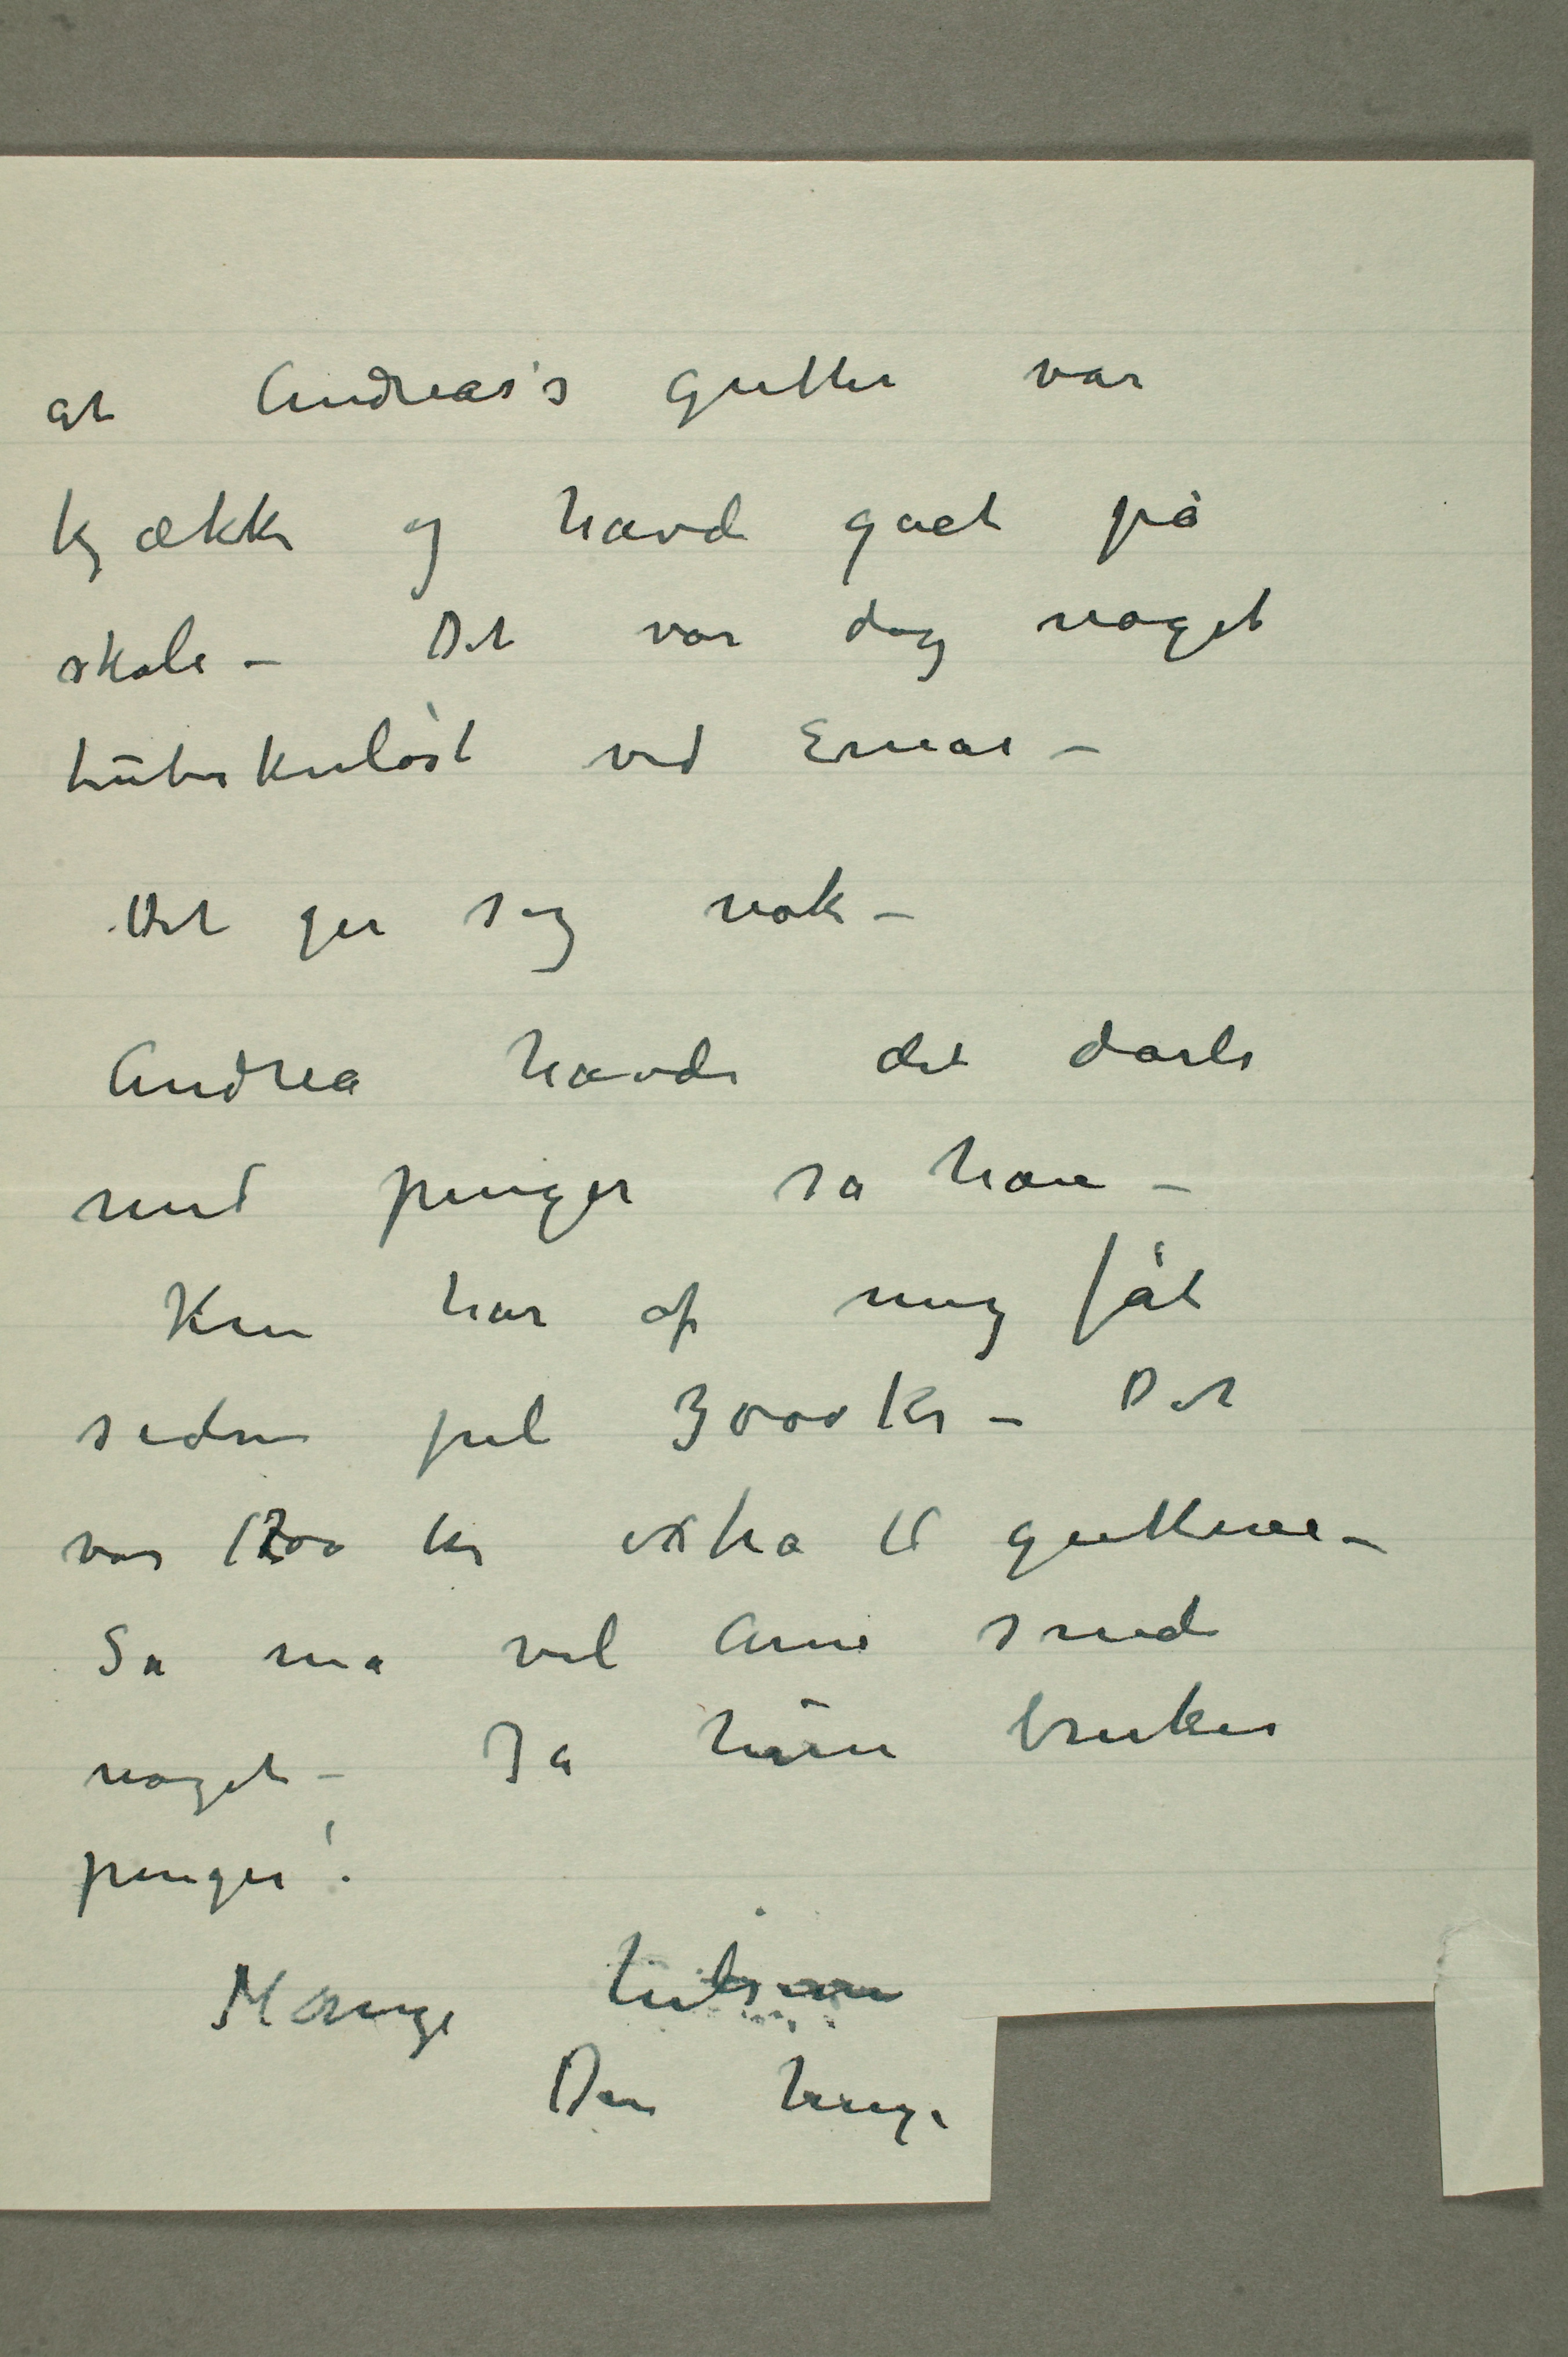 at Andreas's gutter var
kjække og havde gaet på
skole – Det var dog noget
tüberkuløst ved Ernas –
Det ger sig nok –
Andrea havde det dårli
med penger sa han –
Hun har af mig fåt
siden jul 3000 kr – Det
var 1200 kr extra til guttene –
Sa ma vel Arne sende
noget – Ja hün bruker
penger!
Mange hilsener
Din hengi